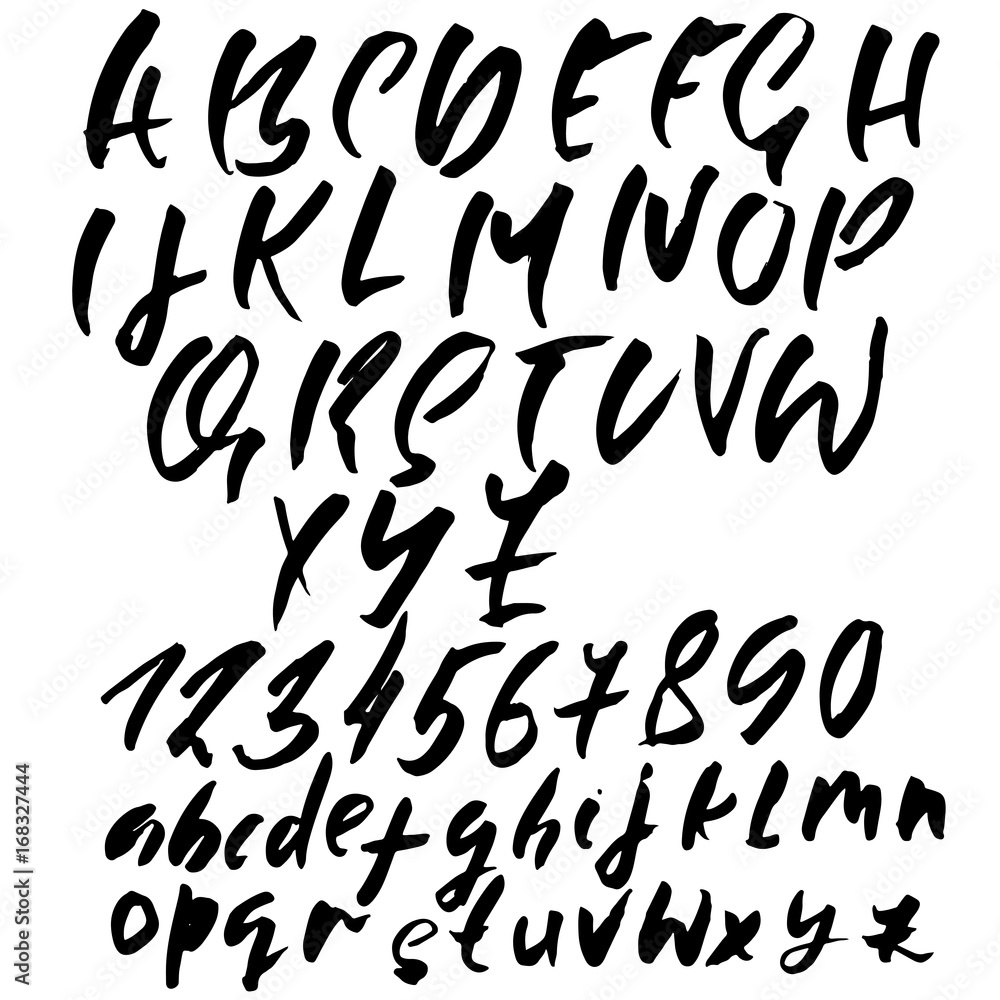 ABCDEFGH
IJKLMNOP
QRSTUVW
XYZ
1234567890
abcdefghijklmn
opqrstuvwxyz
Adobe Stock | #168327444